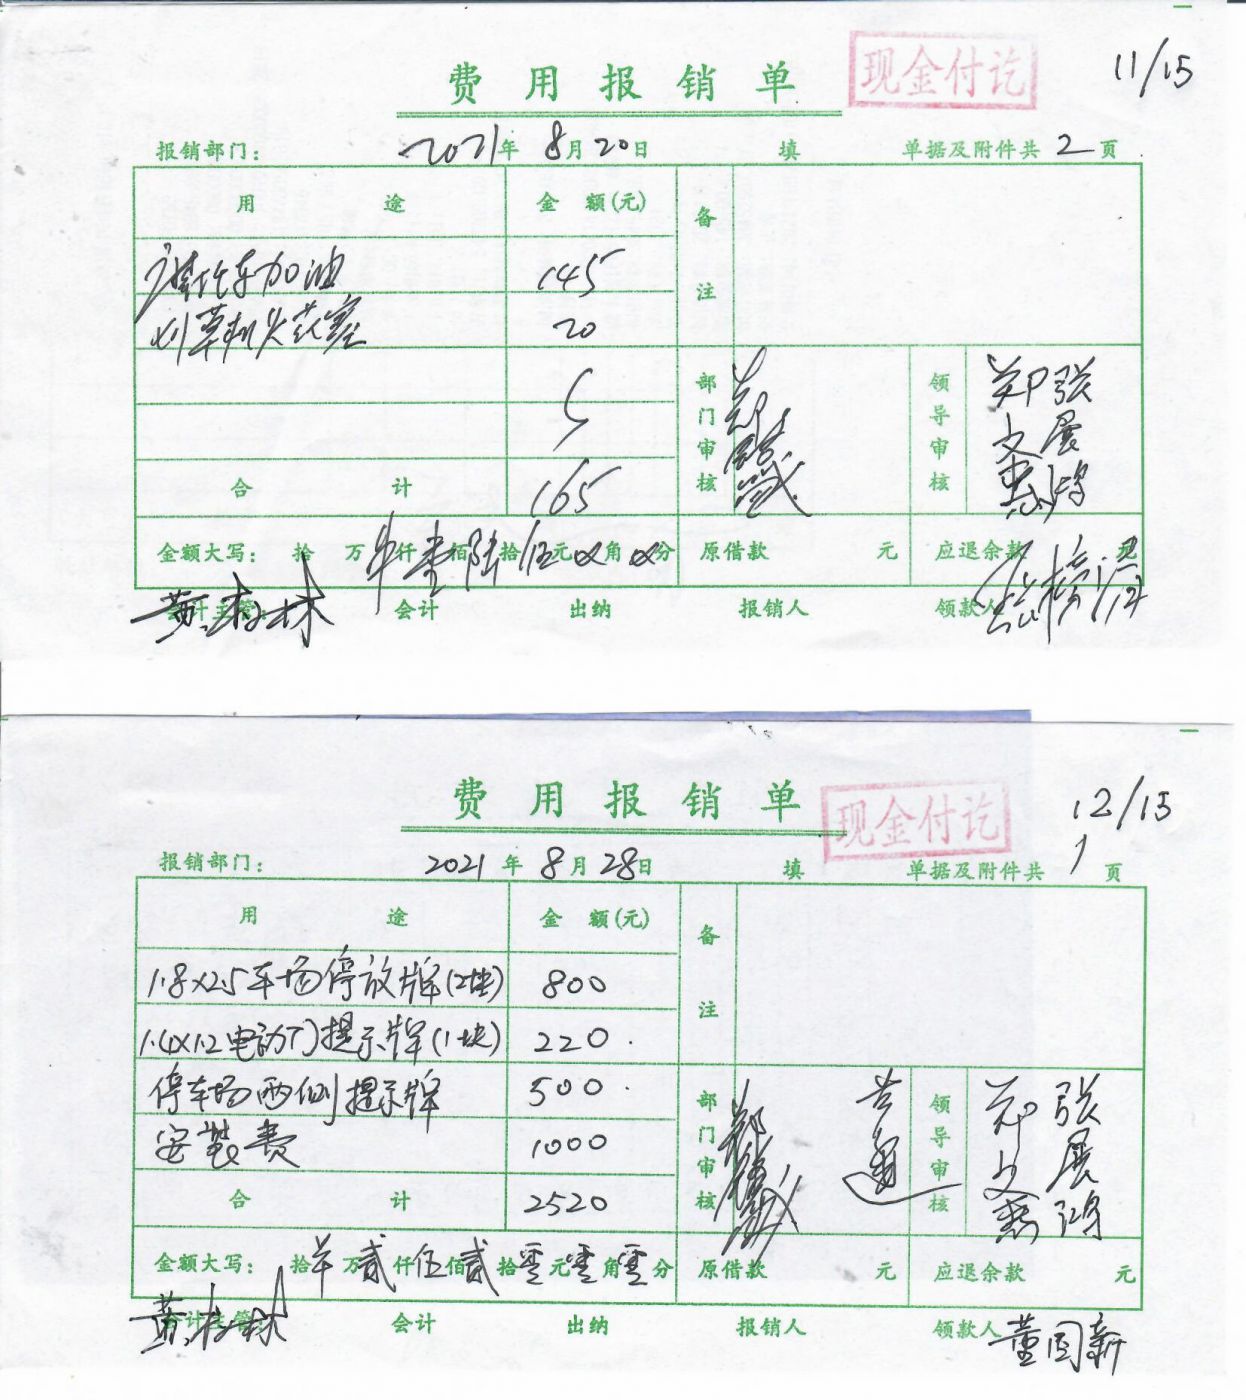 费用报销单
现金付讫
11/15
报销部门： 2021年 8月20日 填 单据及附件共 2 页
用 途 金 额(元) 备注
摩托车加油 145
割草机火花塞 20
部门审核 领导审核 郑文惠 张展鸿
合 计 165
金额大写： 拾 万 仟壹佰陆拾伍元 角 分 原借款 元 应退余款 元
黄 林 会计主管： 会计 出纳 报销人 领款人
费用报销单
现金付讫
12/15
报销部门： 2021年 8月28日 填 单据及附件共 1 页
用 途 金 额(元) 备注
1.8×2.5车场停放牌(2块) 800
1.4×1.2电动门提示牌(1块) 220
停车场两侧提示牌 500
安装费 1000
部门审核 领导审核 郑文惠 张展鸿
合 计 2520
金额大写： 拾 万贰仟伍佰贰拾零元零角零分 原借款 元 应退余款 元
黄 林 会计主管： 会计 出纳 报销人 领款人 董国新